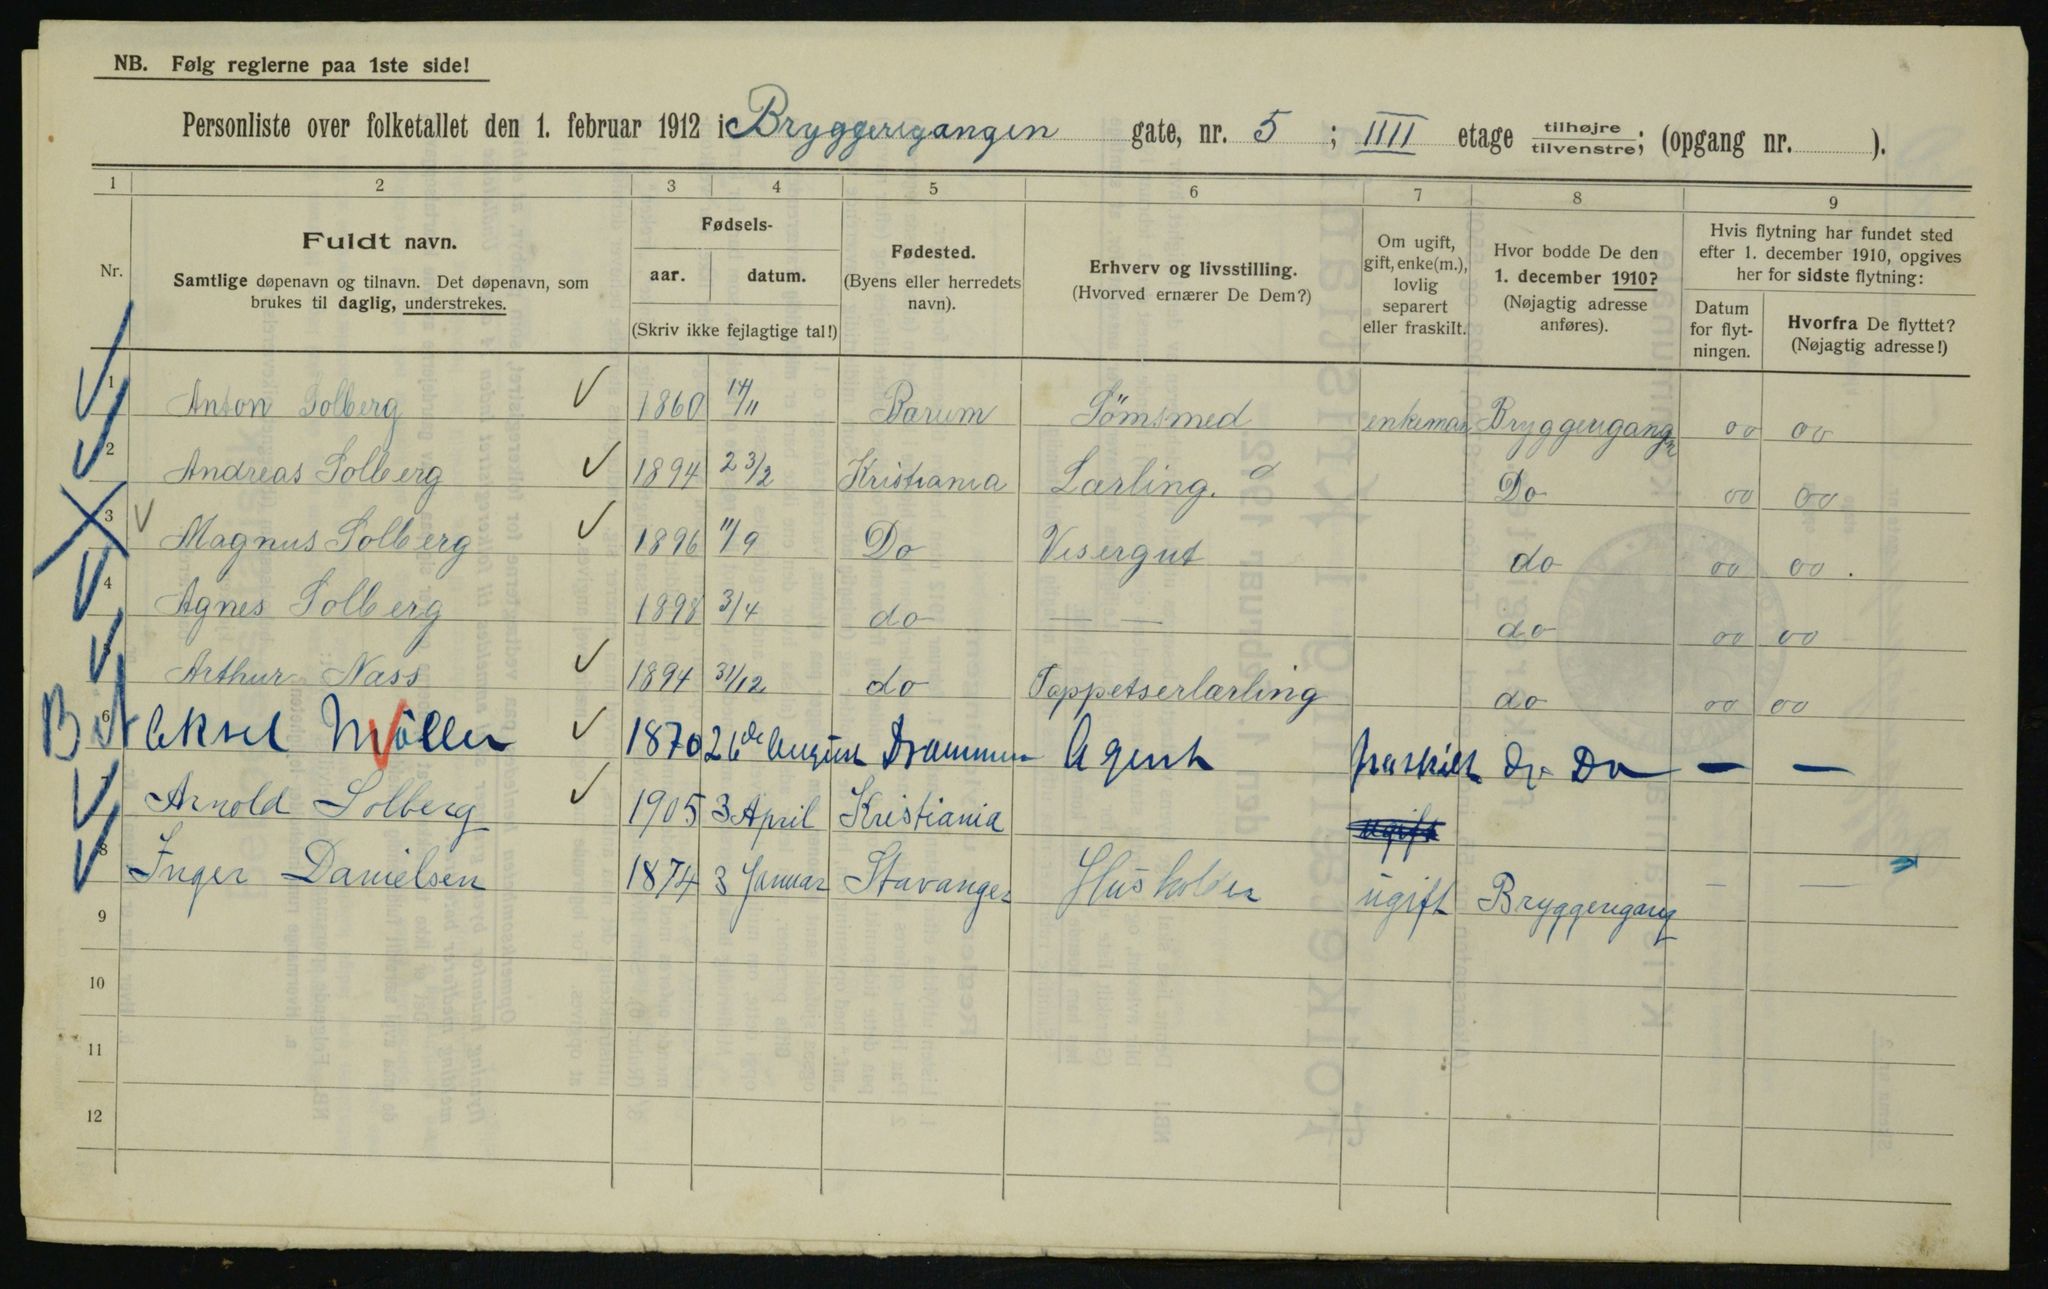 NB. Følg reglerne paa 1ste side!
Personliste over folketallet den 1. februar 1912 i Bryggerigangen gate, nr. 5 ; IIII etage tilhøjre tilvenstre; (opgang nr. ).
1 2 3 4 5 6 7 8 9
Nr.
Fuldt navn.
Samtlige døpenavn og tilnavn. Det døpenavn, som
brukes til daglig, understrekes.
Fødsels-
aar. datum.
(Skriv ikke fejlagtige tal!)
Fødested.
(Byens eller herredets
navn).
Erhverv og livsstilling.
(Hvorved ernærer De Dem?)
Om ugift,
gift, enke(m.),
lovlig
separert
eller fraskilt.
Hvor bodde De den
1. december 1910?
(Nøjagtig adresse
anføres).
Hvis flytning har fundet sted
efter 1. december 1910, opgives
her for sidste flytning:
Datum
for flyt-
ningen.
Hvorfra De flyttet?
(Nøjagtig adresse!)
1 Anton Solberg 1860 14/11 Barum Sömsmed enkeman Bryggerigangn oo oo
2 Andreas Solberg 1894 23/2 Kristiania Lærling. Do oo oo
3 Magnus Solberg 1896 11/9 Do Visergut do oo oo .
4 Agnes Solberg 1898 3/4 do — — do oo oo
5 Arthur Nass 1894 31/12 do Tappetserlærling do oo oo
6 Aksel Möller 1870 26de August Drammen Agent fraskilt do Do — —
7 Arnold Solberg 1905 3 April Kristiania ugift
8 Inger Danielsen 1874 3 Januar Stavanger Husholder ugift Bryggerigang — —
9
10
11
12